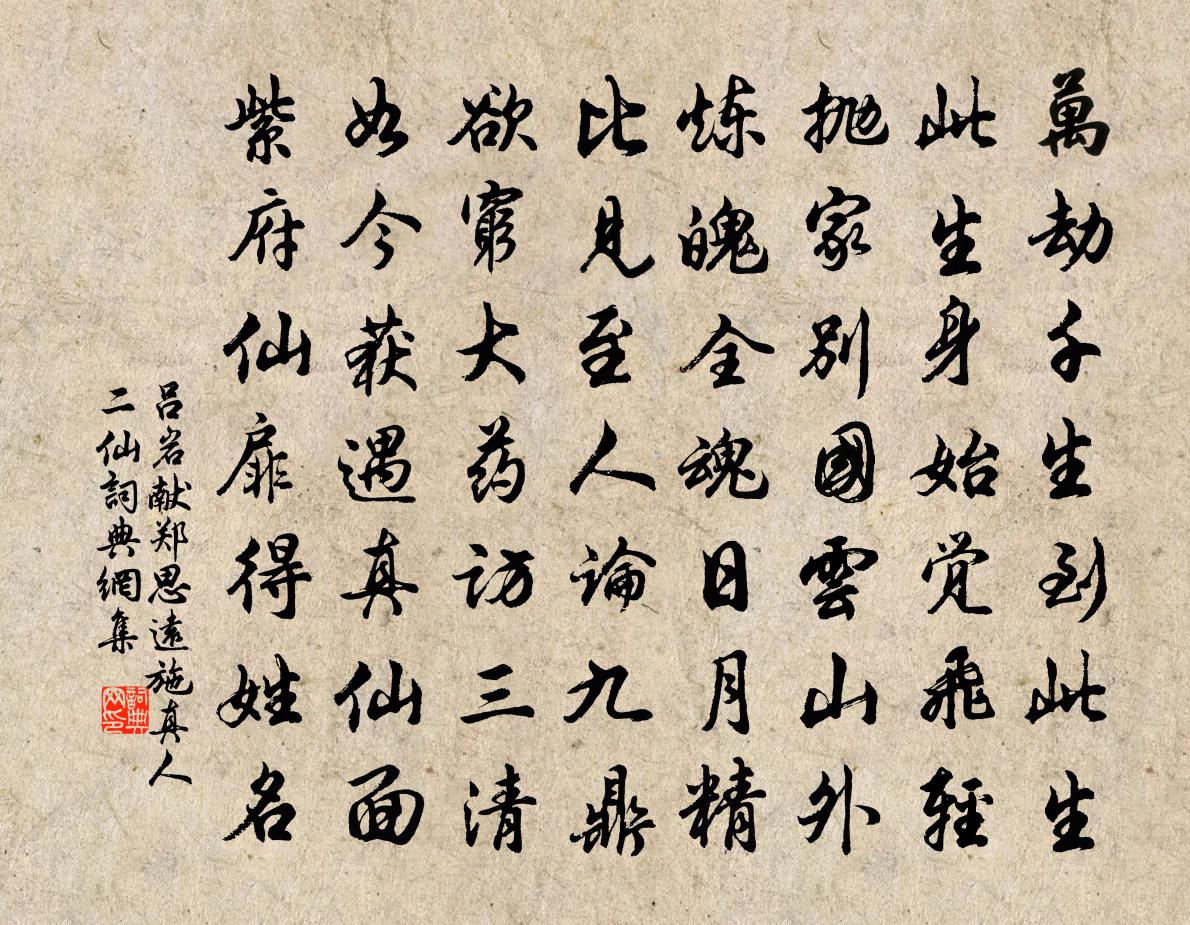 萬劫千生到此生
此生身始觉飛輕
抛家别國雲山外
炼魄全魂日月精
比見至人論九鼎
欲窮大药訪三清
如今获遇真仙面
紫府仙扉得姓名
吕岩献郑思遠施真人
二仙詞典網集
詞典
网印